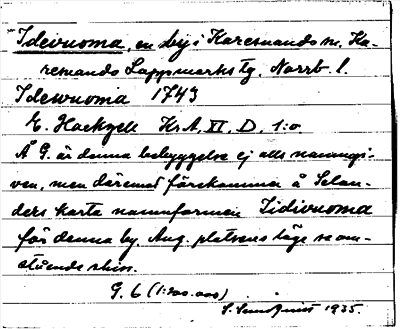 Idivuoma, en by i Karesuando sn, Ka-
resuando Lappmarks tg. Norrb. l.
Idewuoma 1743
E. Hackzell Kr.A. XI. D. 1:o
Å G. är denna bebyggelse ej alls namngi-
ven, men däremot förekommer å Selan-
ders karta namnformen Iidivuoma
för denna by. Ang. platsens läge se om-
stående skiss.
G. 6 (1:200.000)
S. 1935.